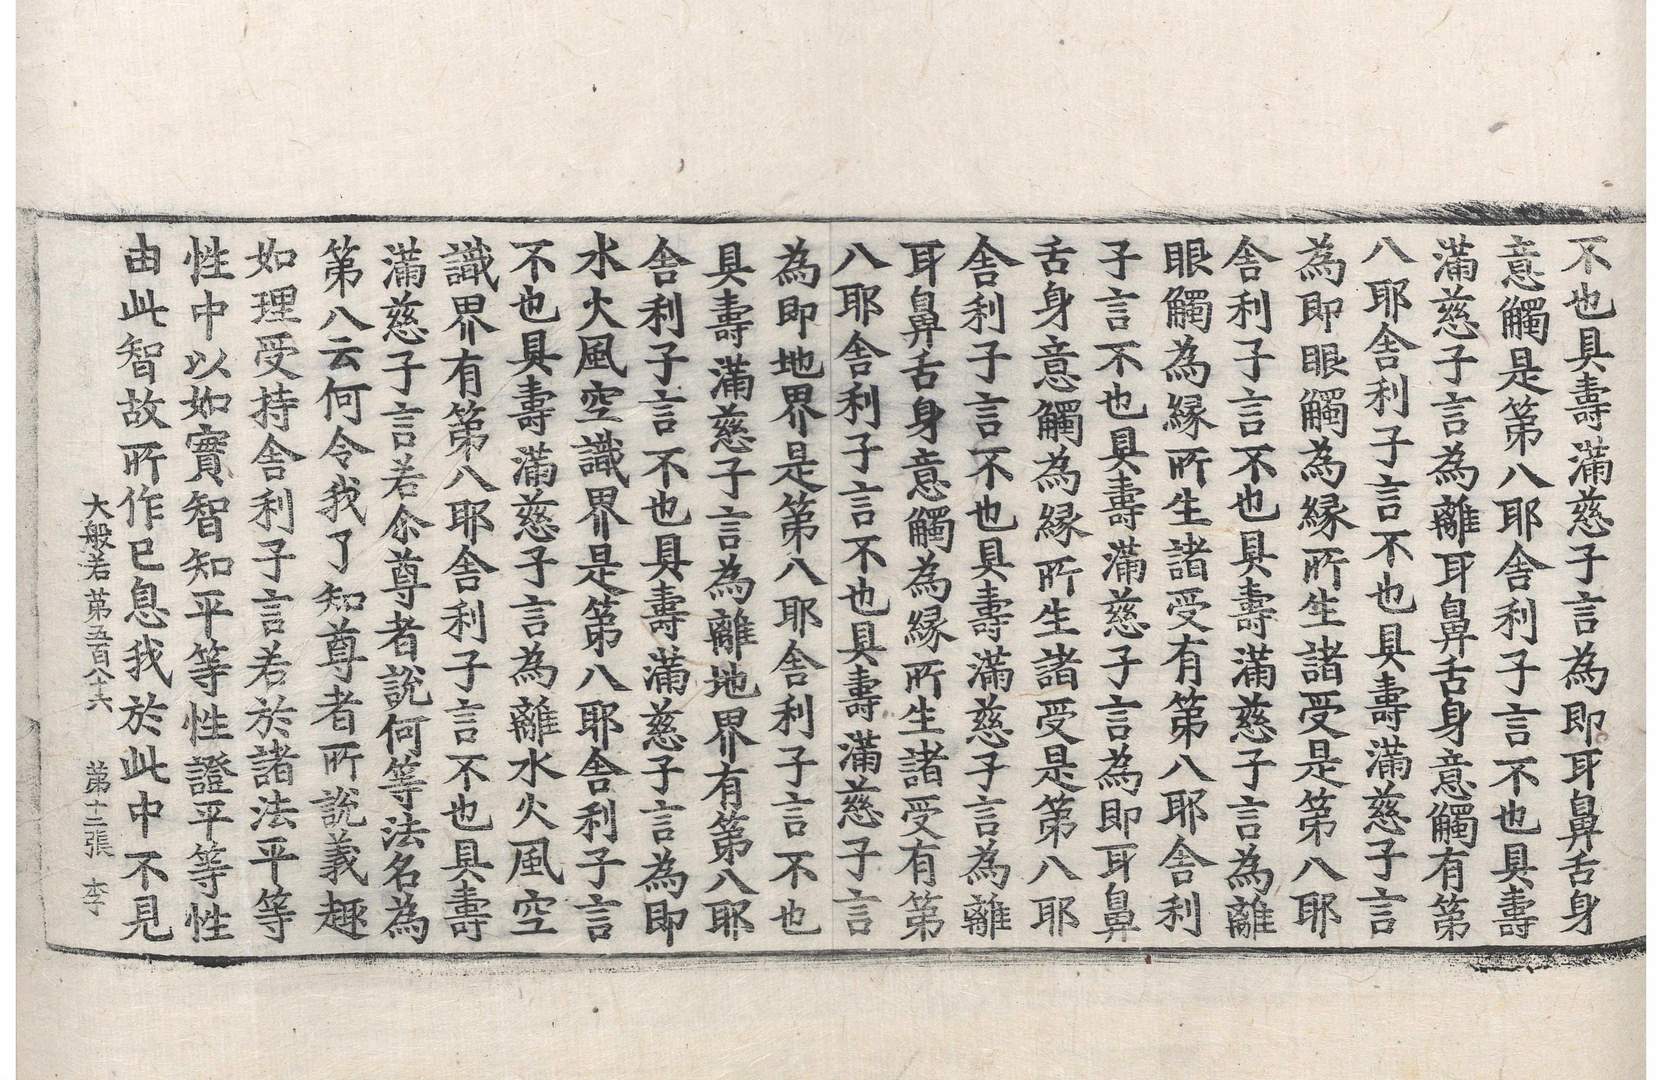 不也具壽滿慈子言為即耳鼻舌身
意觸是第八耶舍利子言不也具壽
滿慈子言為離耳鼻舌身意觸有第
八耶舍利子言不也具壽滿慈子言
為即眼觸為緣所生諸受是第八耶
舍利子言不也具壽滿慈子言為離
眼觸為緣所生諸受有第八耶舍利
子言不也具壽滿慈子言為即耳鼻
舌身意觸為緣所生諸受是第八耶
舍利子言不也具壽滿慈子言為離
耳鼻舌身意觸為緣所生諸受有第
八耶舍利子言不也具壽滿慈子言
為即地界是第八耶舍利子言不也
具壽滿慈子言為離地界有第八耶
舍利子言不也具壽滿慈子言為即
水火風空識界是第八耶舍利子言
不也具壽滿慈子言為離水火風空
識界有第八耶舍利子言不也具壽
滿慈子言若尒尊者說何等法名為
第八云何令我了知尊者所說義趣
如理受持舍利子言若於諸法平等
性中以如實智知平等性證平等性
由此智故所作已息我於此中不見
大般若第五百八十六 第十二張 李